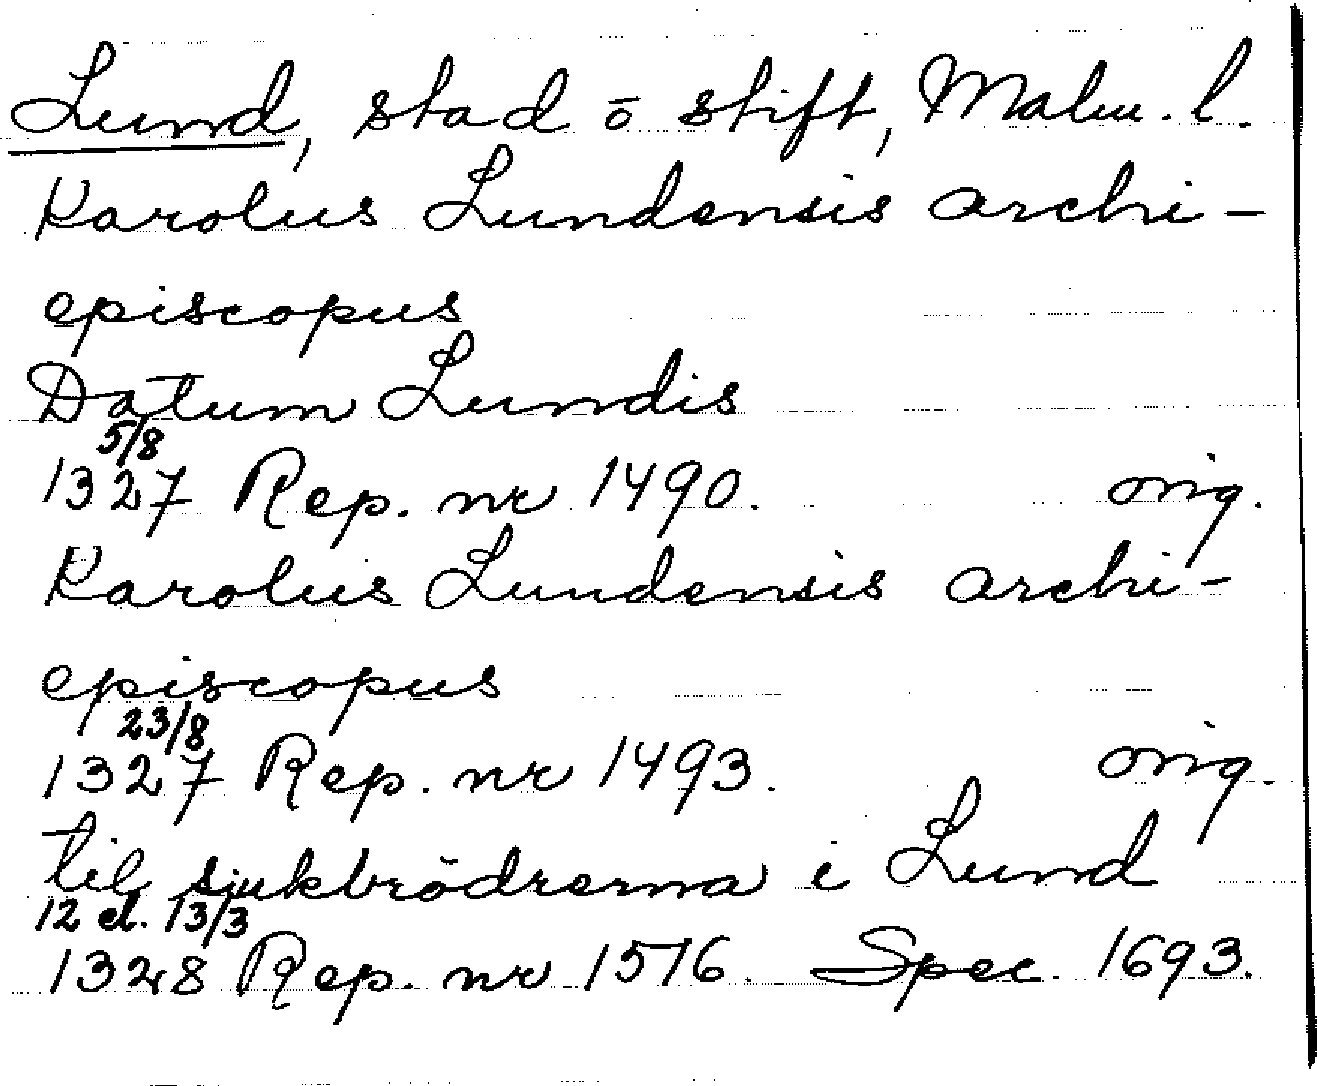 Lund, stad o stift, Malm. l.
Karolus Lundensis archi-
episcopus
Datum Lundis
5/8
1327 Rep. nr 1490. orig.
Karolus Lundensis archi-
episcopus
23/8
1327 Rep. nr 1493. orig.
til sjukbrödrerna i Lund
12 el. 13/3
1328 Rep. nr 1516. Spec. 1693.